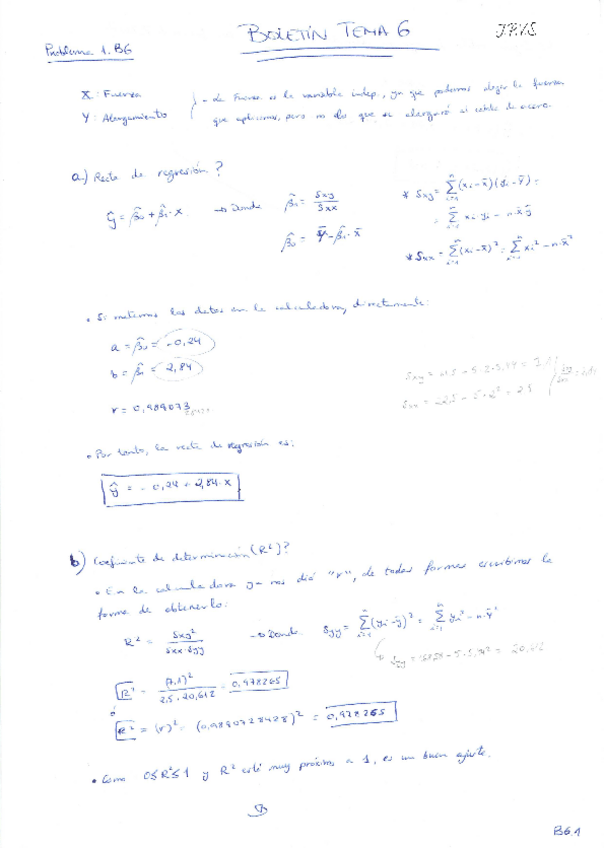 BOLETÍN TEMA 6
J.P.V.S.
Problema 1. B6
X: Fuerza
Y: Alargamiento
- La Fuerza es la variable indep., ya que podemos elegir la fuerza
que aplicamos, pero no lo que se alargará el cable de acero.
a) Recta de regresión?
ŷ = β̂₀ + β̂₁·x → Donde β̂₁ = Sxy/Sxx
β̂₀ = ȳ - β̂₁·x̄
* Sxy = Σ(xi - x̄)(yi - ȳ) =
= Σ xi·yi - n·x̄·ȳ
* Sxx = Σ(xi - x̄)² = Σ xi² - n·x̄²
• Si metemos los datos en la calculadora, directamente:
a = β̂₀ = -0,24
b = β̂₁ = 2,84
r = 0,989073
• Por tanto, la recta de regresión es:
ŷ = -0,24 + 2,84·x
b) Coeficiente de determinación (R²)?
• En la calculadora ya nos dió "r", de todas formas escribimos la
forma de obtenerlo:
R² = Sxy²/Sxx·Syy → Donde Syy = Σ(yi - ȳ)² = Σ yi² - n·ȳ²
R² = (7,1)²/2,5·20,612 = 0,978265
ó
R² = (r)² = (0,9890728428)² = 0,978265
• Como 0≤R²≤1 y R² está muy próximo a 1, es un buen ajuste.
B6.1